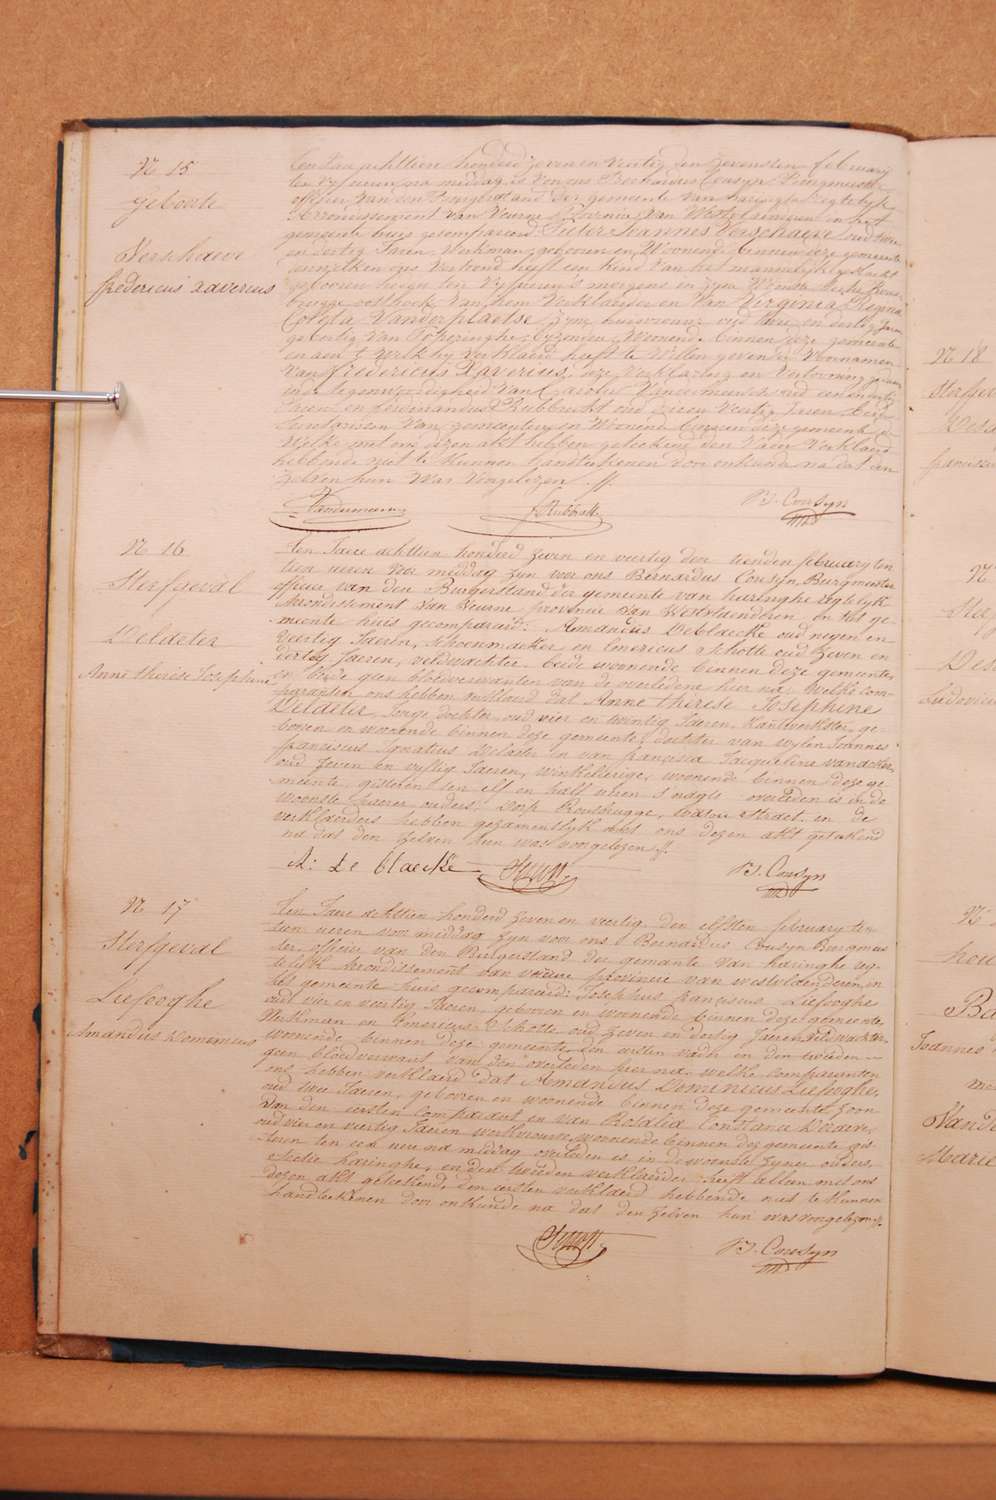 N 15
geboorte
Verschaeve
fredericus xaverius
Een Jaer achttien honderd zeven en veertig den zevensten february
ten vyf ueren na middag is voor ons Bernardus Cousyn Burgmeester
officier van den Burgerstand der gemeente van haringhe regtelyk
Arrondissement van Veurne, Provincie van Westvlaenderen in het
gemeente huis gecompareerd Pieter Joannes Verschaeve oud
en dertig Jaeren, Werkman, geboren en Woonende binnen deze gemeente
denwelken ons vertoond heeft een kind van het mannelyk geslacht
geboren heden ten vyf ueren 's morgens in zyne Woonste
brugge oosthoek van hem Verklaerder en van Virginia Regina
Coleta Vanderplaetse Zyne huisvrouw oud en dertig Jaeren
geboortig van Poperinghe, byzondere, Woonende binnen deze gemeente
en aen 't welk hy verklaerd heeft te willen geven de Voornamen
van Fredericus Xaverius, deze verklaering en vertooning gedaen
in de tegenwoordigheid van Carolus Vandermeersch oud
Jaeren en ferdinandus Rubbrecht oud zeven veertig Jaeren beide
Secretarissen van gemeenten en Woonende binnen deze gemeente
Welke met ons dezen akt hebben geteekend den Vader verklaerd
hebbende niet te kunnen handteekenen door onkunde na dat den
zelven hun was voorgelezen //.
Vandermeersch F Rubbrecht B. Cousyn
N 16
Sterfgeval
Deldeler
Anne thérèse Josephine
Een Jaer achttien honderd zeven en veertig den tienden february ten
tien ueren voor middag zyn voor ons Bernardus Cousyn, Burgmeester
officier van den Burgerstand der gemeente van haringhe regtelyk
Arrondissement van Veurne provincie van Westvlaenderen in het ge-
meente huis gecompareerd: Amandus Deblaecke oud negen en
veertig Jaeren, Schoenmaeker en Emericus Schotte oud zeven en
dertig Jaeren, veldwachter, beide woonende binnen deze gemeente
en beide geen bloedverwanten van de overledene hier na: welke com-
paranten ons hebben verklaerd dat Anne Thérèse Josephine
Deldeler, Jonge dochter, oud vier en twintig Jaeren, kantwerkster, ge-
boren en woonende binnen deze gemeente, dochter van wylen Joannes
franciscus Ignatius Deldeler en van francisca Jacqueline vanacker,
oud zeven en vyftig Jaeren, winkelierige, woonende binnen deze ge-
meente, gisteren ten elf en half ueren s'nagts overleden is in de
woonste haerer ouders, dorp Rousbrugge, watou straet. en de
verklaerders hebben gezamentlyk met ons dezen akt geteekend
na dat den zelven hun was voorgelezen //.
A: de blaecke Schotte B. Cousyn
N 17
Sterfgeval
Liefooghe
Amandus Domenicus
Een Jaer achttien honderd zeven en veertig den elfsten february ten
tien ueren voor middag zyn voor ons Bernardus Cousyn Burgmees-
ter, officier van den Burgerstand der gemeente van haringhe reg-
telyk Arrondissement van veurne provincie van westvlaenderen, in
het gemeente huis gecompareerd: Josephus franciscus Liefooghe
oud vier en veertig Jaeren, geboren en woonende binnen deze gemeente
Werkman en Emericus Schotte oud zeven en dertig Jaeren veldwachter
woonende binnen deze gemeente, den eersten vader en den tweeden
geen bloedverwant van den overleden hier na: welke comparanten
ons hebben verklaerd dat Amandus Domenicus Liefooghe,
oud twee Jaeren, geboren en woonende binnen deze gemeente, zoon
van den eersten comparant en van Rosalia Constance
oud vier en veertig Jaeren werkvrouw, woonende binnen dez gemeente gis-
teren ten een ure na middag overleden is in de woonste zyner ouders,
haringhe, en den tweeden verklaerder heeft alleen met ons
dezen akt geteekend, den eersten verklaerd hebbende niet te kunnen
handteekenen door onkunde na dat den zelven hun was voorgelezen //.
Schotte B. Cousyn
N 18
Sterfgev
franciscu
N
Ster
Ludovicu
N
Ba
Joannes
Vande
Marie